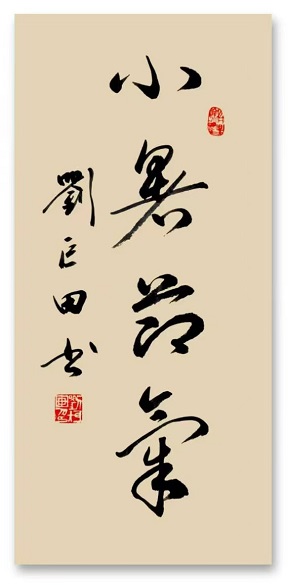 小暑節氣
劉巨田书